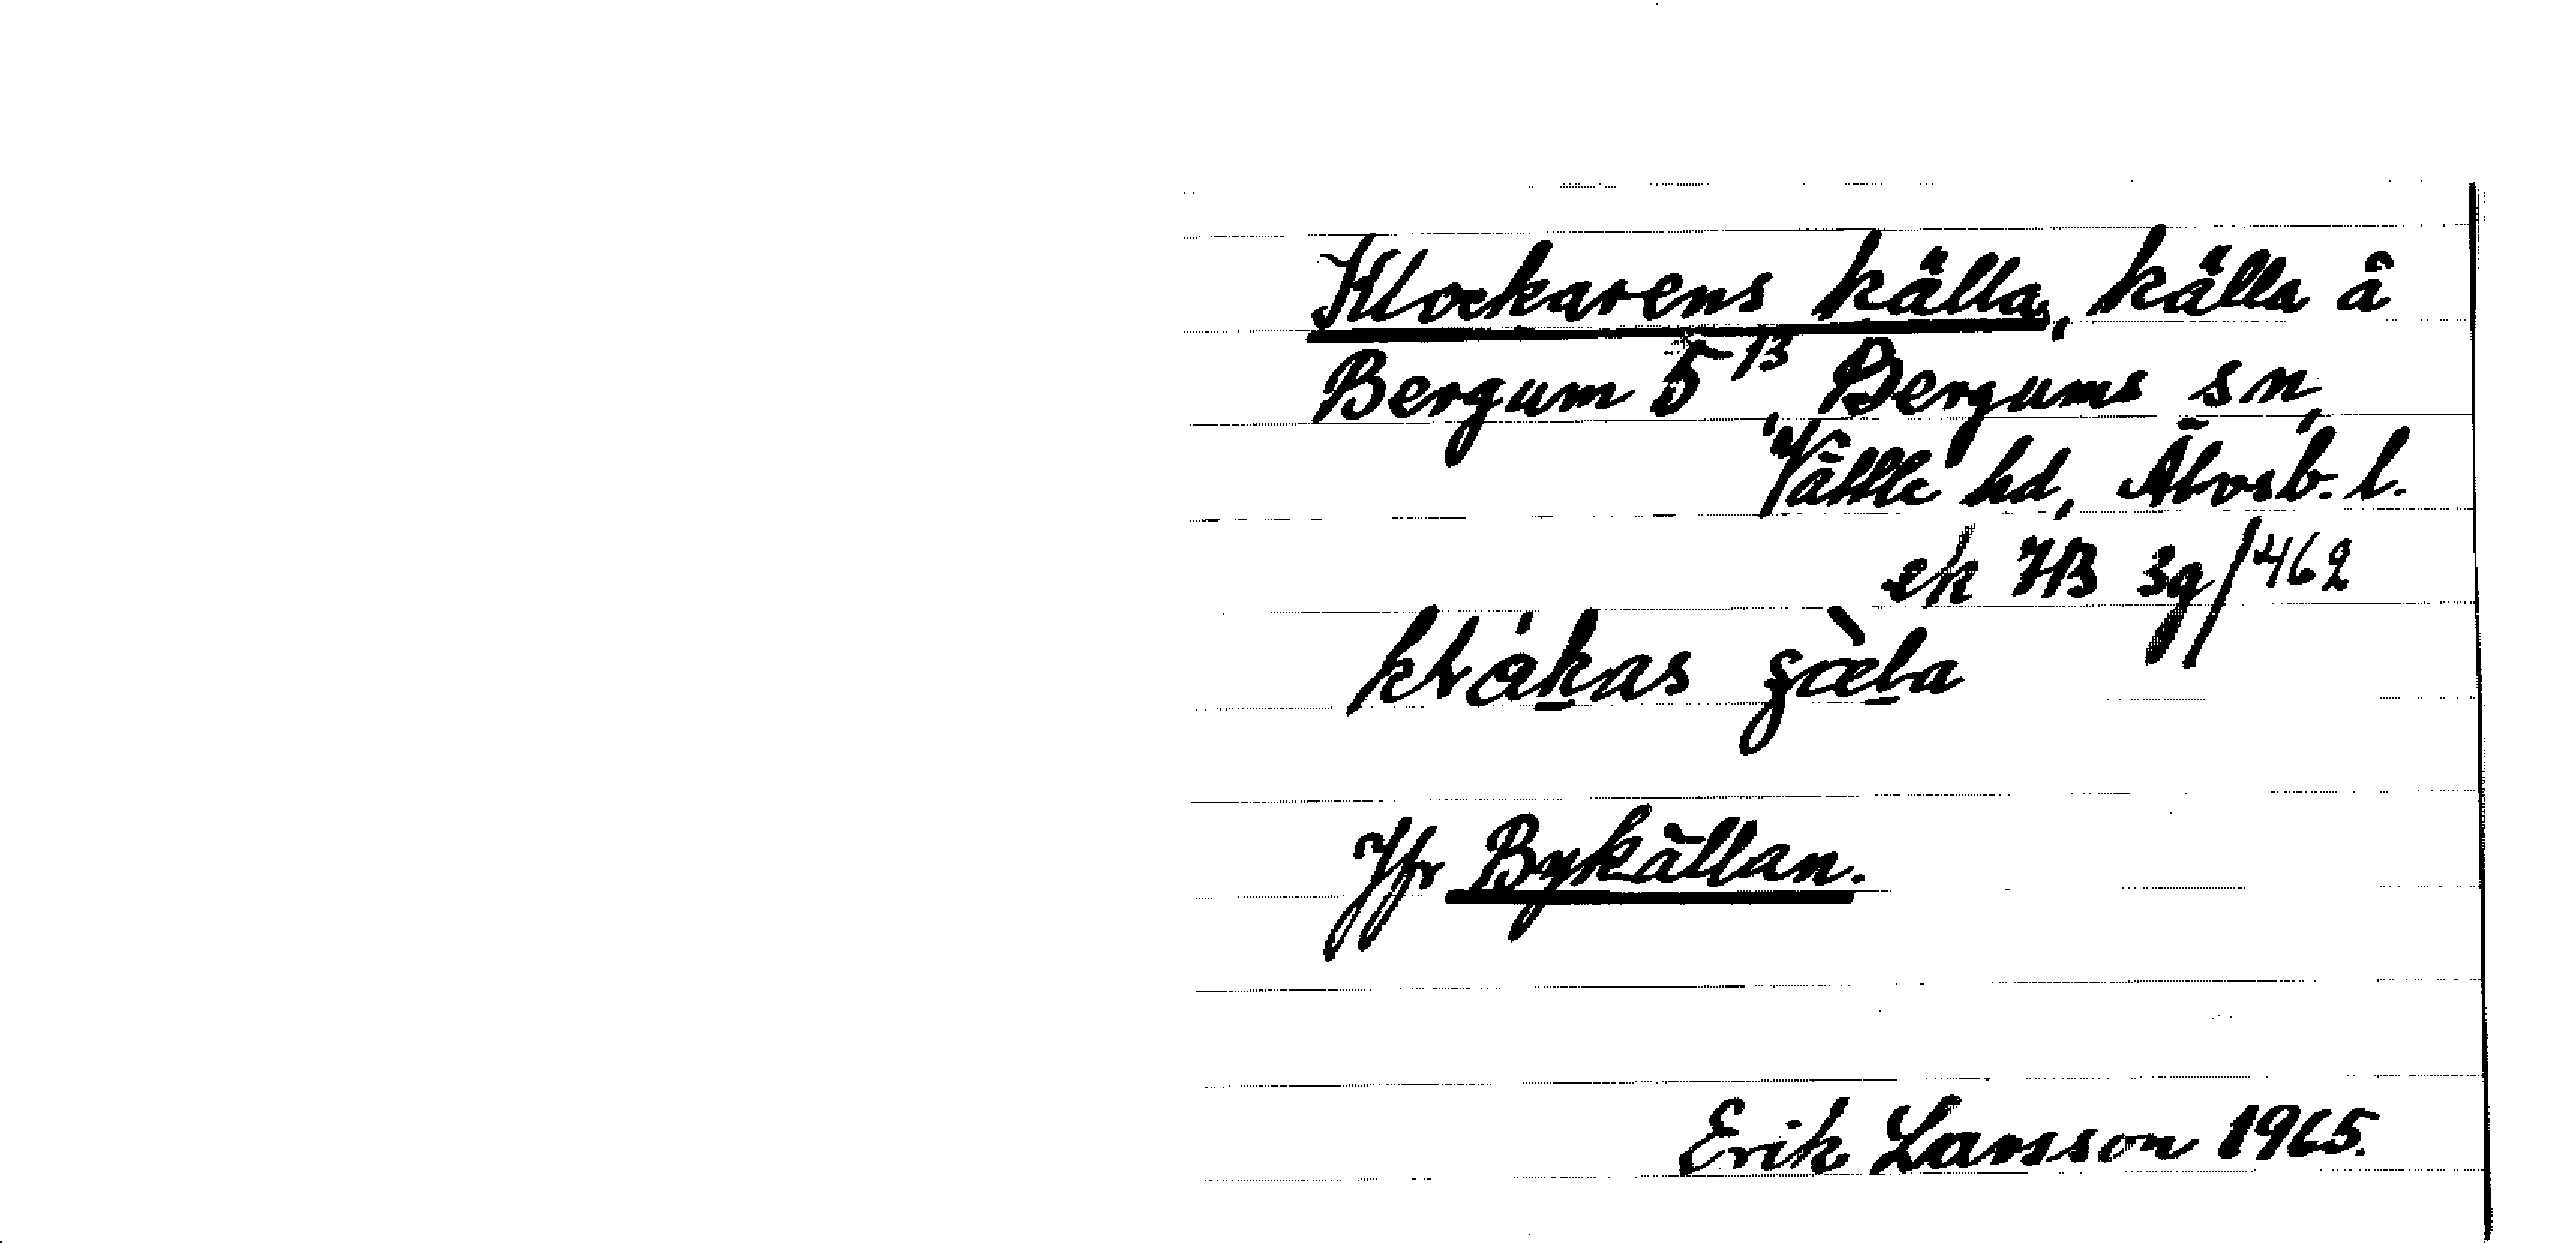 Klockarens källa, källa å
Bergum 5¹³, Bergums sn,
Vättle hd, Älvsb. l.
ek 7B 3g/462
klåkas
Jfr Bykällan.
Erik Larsson 1965.